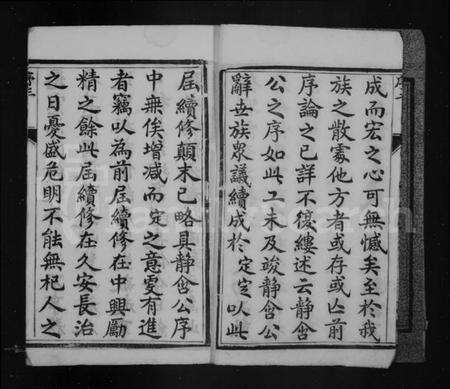 成而宏之心可無憾矣至於我
族之散處他方者或存或亡前
序論之已詳不復縷述云靜含
公之序如此工未及竣靜含公
辭世族眾議續成於定定以此
屆續修顛末已略具靜含公序
中無俟增減而定之意更有進
者竊以為前屆續修在中興勵
精之餘此屆續修在久安長治
之日憂盛危明不能無杞人之